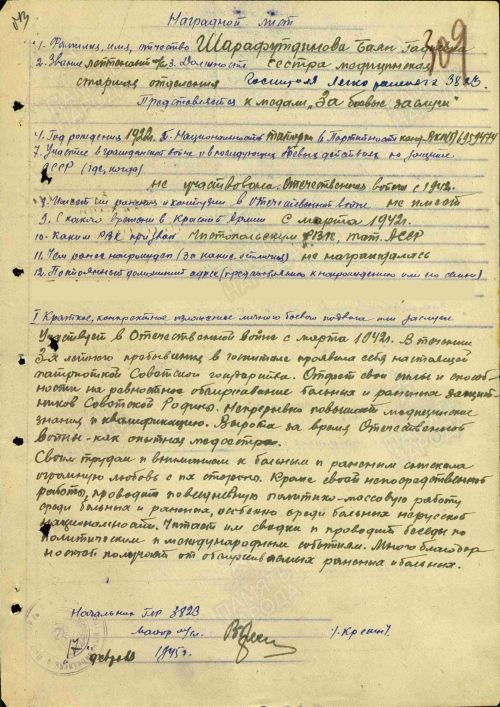 Наградной лист
309
1. Фамилия, имя, отчество Шарафутдинова Баян
2. Звание лейтенант м/с 3. Должность сестра медицинская
старшая отделения Госпиталя легко раненого 3823
Представляется к медали „За боевые заслуги"
4. Год рождения 5. Национальность татарка 6. Партийность канд. ВКП(б)
7. Участие в гражданской войне и в последующих боевых действиях по защите
СССР (где, когда)
не участвовала. Отечественная война с 1942г.
8. Имеет ли ранения и контузии в отечественной войне не имеет
9. С какого времени в Красной Армии с марта 1942г.
10. Каким РВК призван Чистопольским РВК, Тат. АССР
11. Чем ранее награжден (за какие отличия) не награждалась
12. Постоянный домашний адрес (представляемого к награждению или его семьи)
I Краткое, конкретное изложение личного боевого подвига или заслуг
Участвует в Отечественной войне с марта 1942г. В течении
3-х летнего пребывания в госпитале проявила себя настоящей
патриоткой Советского государства. Отдает свои силы и способ-
ности на ревностное обслуживание больных и раненых защит-
ников Советской Родины. Непрерывно повышает медицинские
знания и квалификацию. Выросла за время Отечественной
войны - как опытная медсестра.
Своим трудом и вниманием к больным и раненым снискала
огромную любовь с их стороны. Кроме своей непосредственной
работы, проводит повседневную политико-массовую работу
среди больных и раненых, особенно среди больных нерусской
национальности. Читает им сводки и проводит беседы по
политическим и международным событиям. Много благодар-
ностей получает от обслуживаемых раненых и больных.
Начальник ГЛР 3823
майор м/сл. /Крейн/
„17" февраля 1945г.